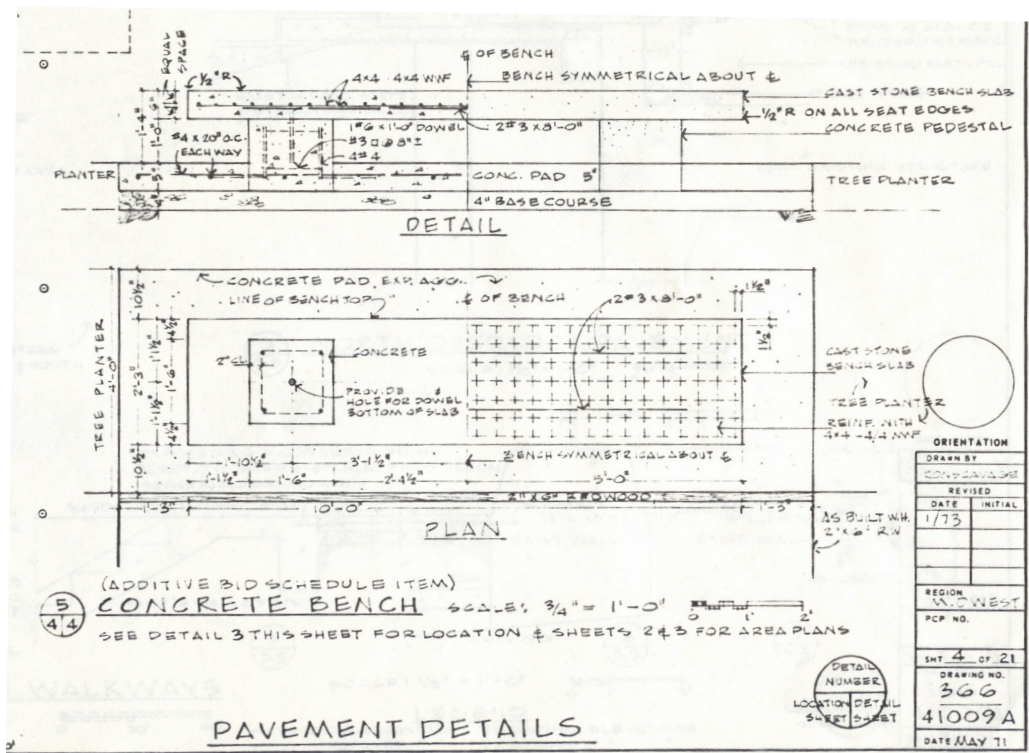 EQUAL
SPACE
½" R
4x4 · 4x4 WWF
℄ OF BENCH
BENCH SYMMETRICAL ABOUT ℄
CAST STONE BENCH SLAB
½" R ON ALL SEAT EDGES
CONCRETE PEDESTAL
1'-4"
1'-0"
#4 x 20" O.C.
EACH WAY
1#6 x 1'-0" DOWEL
#3 □ @ 8" ±
4#4
2#3 x 8'-0"
PLANTER
CONC. PAD 5"
TREE PLANTER
4" BASE COURSE
DETAIL
CONCRETE PAD, EXP. AGG.
LINE OF BENCH TOP
℄ OF BENCH
2#3 x 8'-0"
1½"
1½"
TREE PLANTER
4'-0"
10½"
2'-3"
10½"
1½"
1'-6"
1½"
4½"
4½"
2" CL.
CONCRETE
PROVIDE ℄
HOLE FOR DOWEL
BOTTOM OF SLAB
CAST STONE
BENCH SLAB
TREE PLANTER
REINF. WITH
4x4 - 4/4 WWF
1'-10½"
3'-1½"
BENCH SYMMETRICAL ABOUT ℄
1'-1½"
1'-6"
2'-4½"
5'-0"
2" x 6" REDWOOD
1'-3"
10'-0"
1'-3"
PLAN
AS BUILT W.H.
2" x 6" R.W
(ADDITIVE BID SCHEDULE ITEM)
5
4 4
CONCRETE BENCH SCALE: ¾" = 1'-0"
0 1' 2'
SEE DETAIL 3 THIS SHEET FOR LOCATION & SHEETS 2 & 3 FOR AREA PLANS
DETAIL
NUMBER
LOCATION DETAIL
SHEET SHEET
PAVEMENT DETAILS
ORIENTATION
DRAWN BY
CONSCAVAGE
REVISED
DATE INITIAL
1/73
REGION
MIDWEST
PCP NO.
SHT 4 OF 21
DRAWING NO.
366
41009A
DATE MAY 71